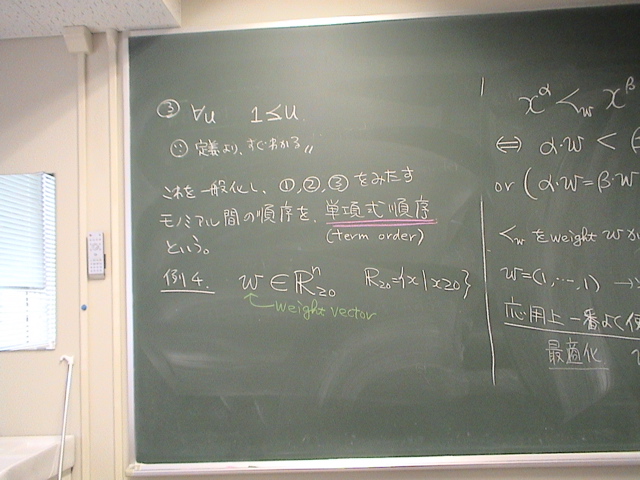 ③ ∀u 1≤u
∵ 定義より、すぐわかる〃
これを一般化し、①,②,③をみたす
モノミアル間の順序を、単項式順序
(term order)
という。
例4. w∈ℝⁿ≥0 ℝ≥0={x|x≥0}
weight vector
x^α <_w x^β
⇔ α·w <
or (α·w=β·w
<_w をweight w
w=(1,…,1) →
応用上一番よく使
最適化